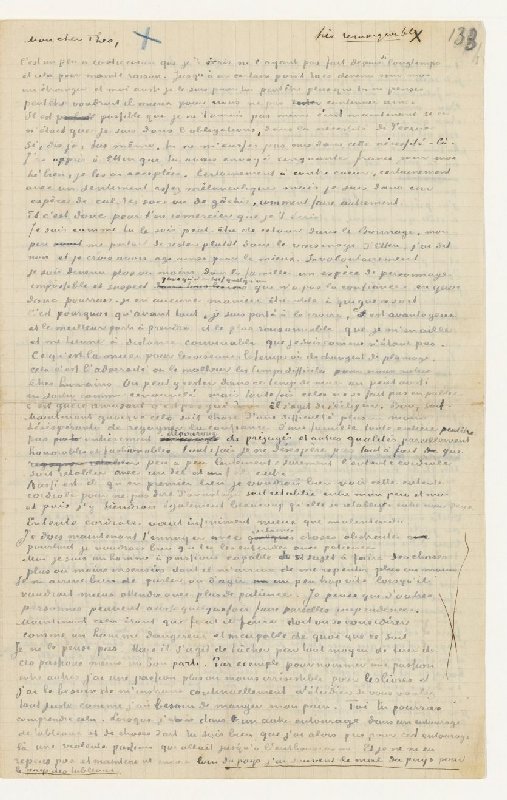 Mon cher Theo, très remarquable 133
C'est un peu à contre-coeur que je t'écris ne l'ayant pas fait depuis si longtemps
et cela pour mainte raison. Jusqu'à un certain point tu es devenu pour moi
un étranger et moi aussi je le suis pour toi peut-être plus que tu ne penses
peut-être vaudrait il mieux pour nous ne pas continuer ainsi.
Il est possible que je ne t'aurais pas même écrit maintenant si ce
n'était que je suis dans l'obligation, dans la nécessité de t'écrire
Si, dis-je, toi-même, tu ne m'eusses pas mis dans cette nécessité-là.
J'ai appris à Etten que tu avais envoyé cinquante francs pour moi
hé bien, je les ai acceptés. Certainement à contre-coeur, certainement
avec un sentiment assez mélancolique mais je suis dans une
espèce de cul-de-sac ou de gâchis, comment faire autrement.
Et c'est donc pour t'en remercier que je t'écris.
Je suis comme tu le sais peut-être de retour dans le Borinage, mon
père me parlait de rester plutôt dans le voisinage d'Etten, j'ai dit
non et je crois avoir agi ainsi pour le mieux. Involontairement
je suis devenu plus ou moins dans la famille un espèce de personnage
impossible et suspect quoi qu'il en soit quelqu'un qui n'a pas la confiance, en quoi
donc pourrais-je en aucune manière être utile à qui que ce soit.
C'est pourquoi qu'avant tout, je suis porté à le croire, c'est avantageux
et le meilleur parti à prendre et le plus raisonnable que je m'en aille
et me tienne à distance convenable que je sois comme n'étant pas.
Ce qu'est la mue pour les oiseaux, le temps où ils changent de plumage,
cela c'est l'adversité ou le malheur, les temps difficiles pour nous autres
êtres humains. On peut y rester dans ce temps de mue, on peut aussi
en sortir comme renouvelé mais toutefois cela ne se fait pas en public
c'est guère amusant
Maintenant quoique cela soit chose d'une difficulté plus ou moins
désespérante de regagner la confiance d'une famille toute entière peut-être
pas entièrement dépourvue de préjugés et autres qualités pareillement
honorables et fashionables toutefois je ne désespère pas tout à fait que
peu à peu, lentement & sûrement l'entente cordiale
soit rétablie avec un tel et un tel
Aussi est il qu'en premier lieu je voudrais bien voir cette entente
cordiale pour ne pas dire davantage, soit rétablie entre mon père et moi
et puis j'y tiendrais également beaucoup qu'elle se rétablisse entre nous deux
Entente cordiale vaut infiniment mieux que malentendu.
Je dois maintenant t'ennuyer avec certaines choses abstraites
pourtant je voudrais bien que tu les entendes avec patience.
Moi je suis un homme à passions, capable de et sujet à faire des choses
plus ou moins insensées dont il m'arrive de me repentir plus ou moins
Il m'arrive bien de parler ou d'agir un peu trop vite lorsqu'il
vaudrait mieux attendre avec plus de patience. Je pense que d'autres
personnes peuvent aussi quelquefois faire pareilles imprudences.
Maintenant cela étant que faut-il faire doit-on se considérer
comme un homme dangereux et incapable de quoi que ce soit
Je ne le pense pas. Mais il s'agit de tâcher par tout moyen de tirer de
ces passions même un bon parti. Par exemple pour nommer une passion
entre autres j'ai une passion plus ou moins irrésistible pour les livres et
j'ai le besoin de m'instruire continuellement d'étudier si vous voulez
tout juste comme j'ai besoin de manger mon pain. Toi tu pourras
comprendre cela. Lorsque j'étais dans un autre entourage dans un entourage
de tableaux et de choses d'art tu sais bien que j'ai alors pris pour cet entourage
là une violente passion qui allait jusqu'à l'enthousiasme. Et je ne m'en
repens pas et maintenant encore loin du pays j'ai souvent le mal du pays pour
le pays des tableaux.